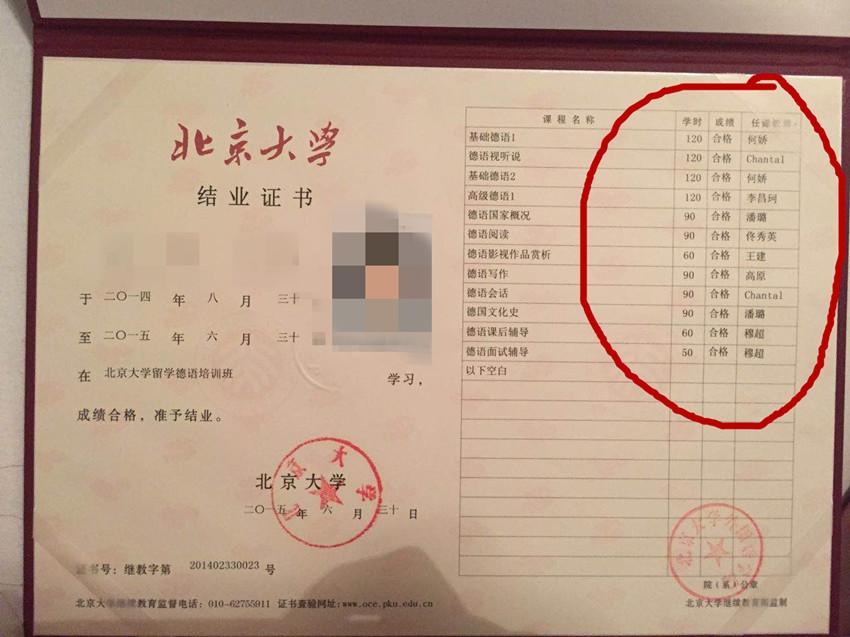 北京大学
结业证书
于 二〇一四 年 八 月 三十
至 二〇一五 年 六 月 三十
在 北京大学留学德语培训班 学习,
成绩合格,准予结业。
北京大学
二〇一五 年 六 月 三十 日
证书号:继教字第 201402330023 号
北京大学继续教育监督电话:010-62755911 证书查验网址:www.oce.pku.edu.cn
课程名称 学时 成绩 任课教师
基础德语1 120 合格 何娇
德语视听说 120 合格 Chantal
基础德语2 120 合格 何娇
高级德语1 120 合格 李昌珂
德语国家概况 90 合格 潘璐
德语阅读 90 合格 佟秀英
德语影视作品赏析 60 合格 王建
德语写作 90 合格 高原
德语会话 90 合格 Chantal
德国文化史 90 合格 潘璐
德语课后辅导 60 合格 穆超
德语面试辅导 50 合格 穆超
以下空白
院(系)公章
北京大学继续教育部监制